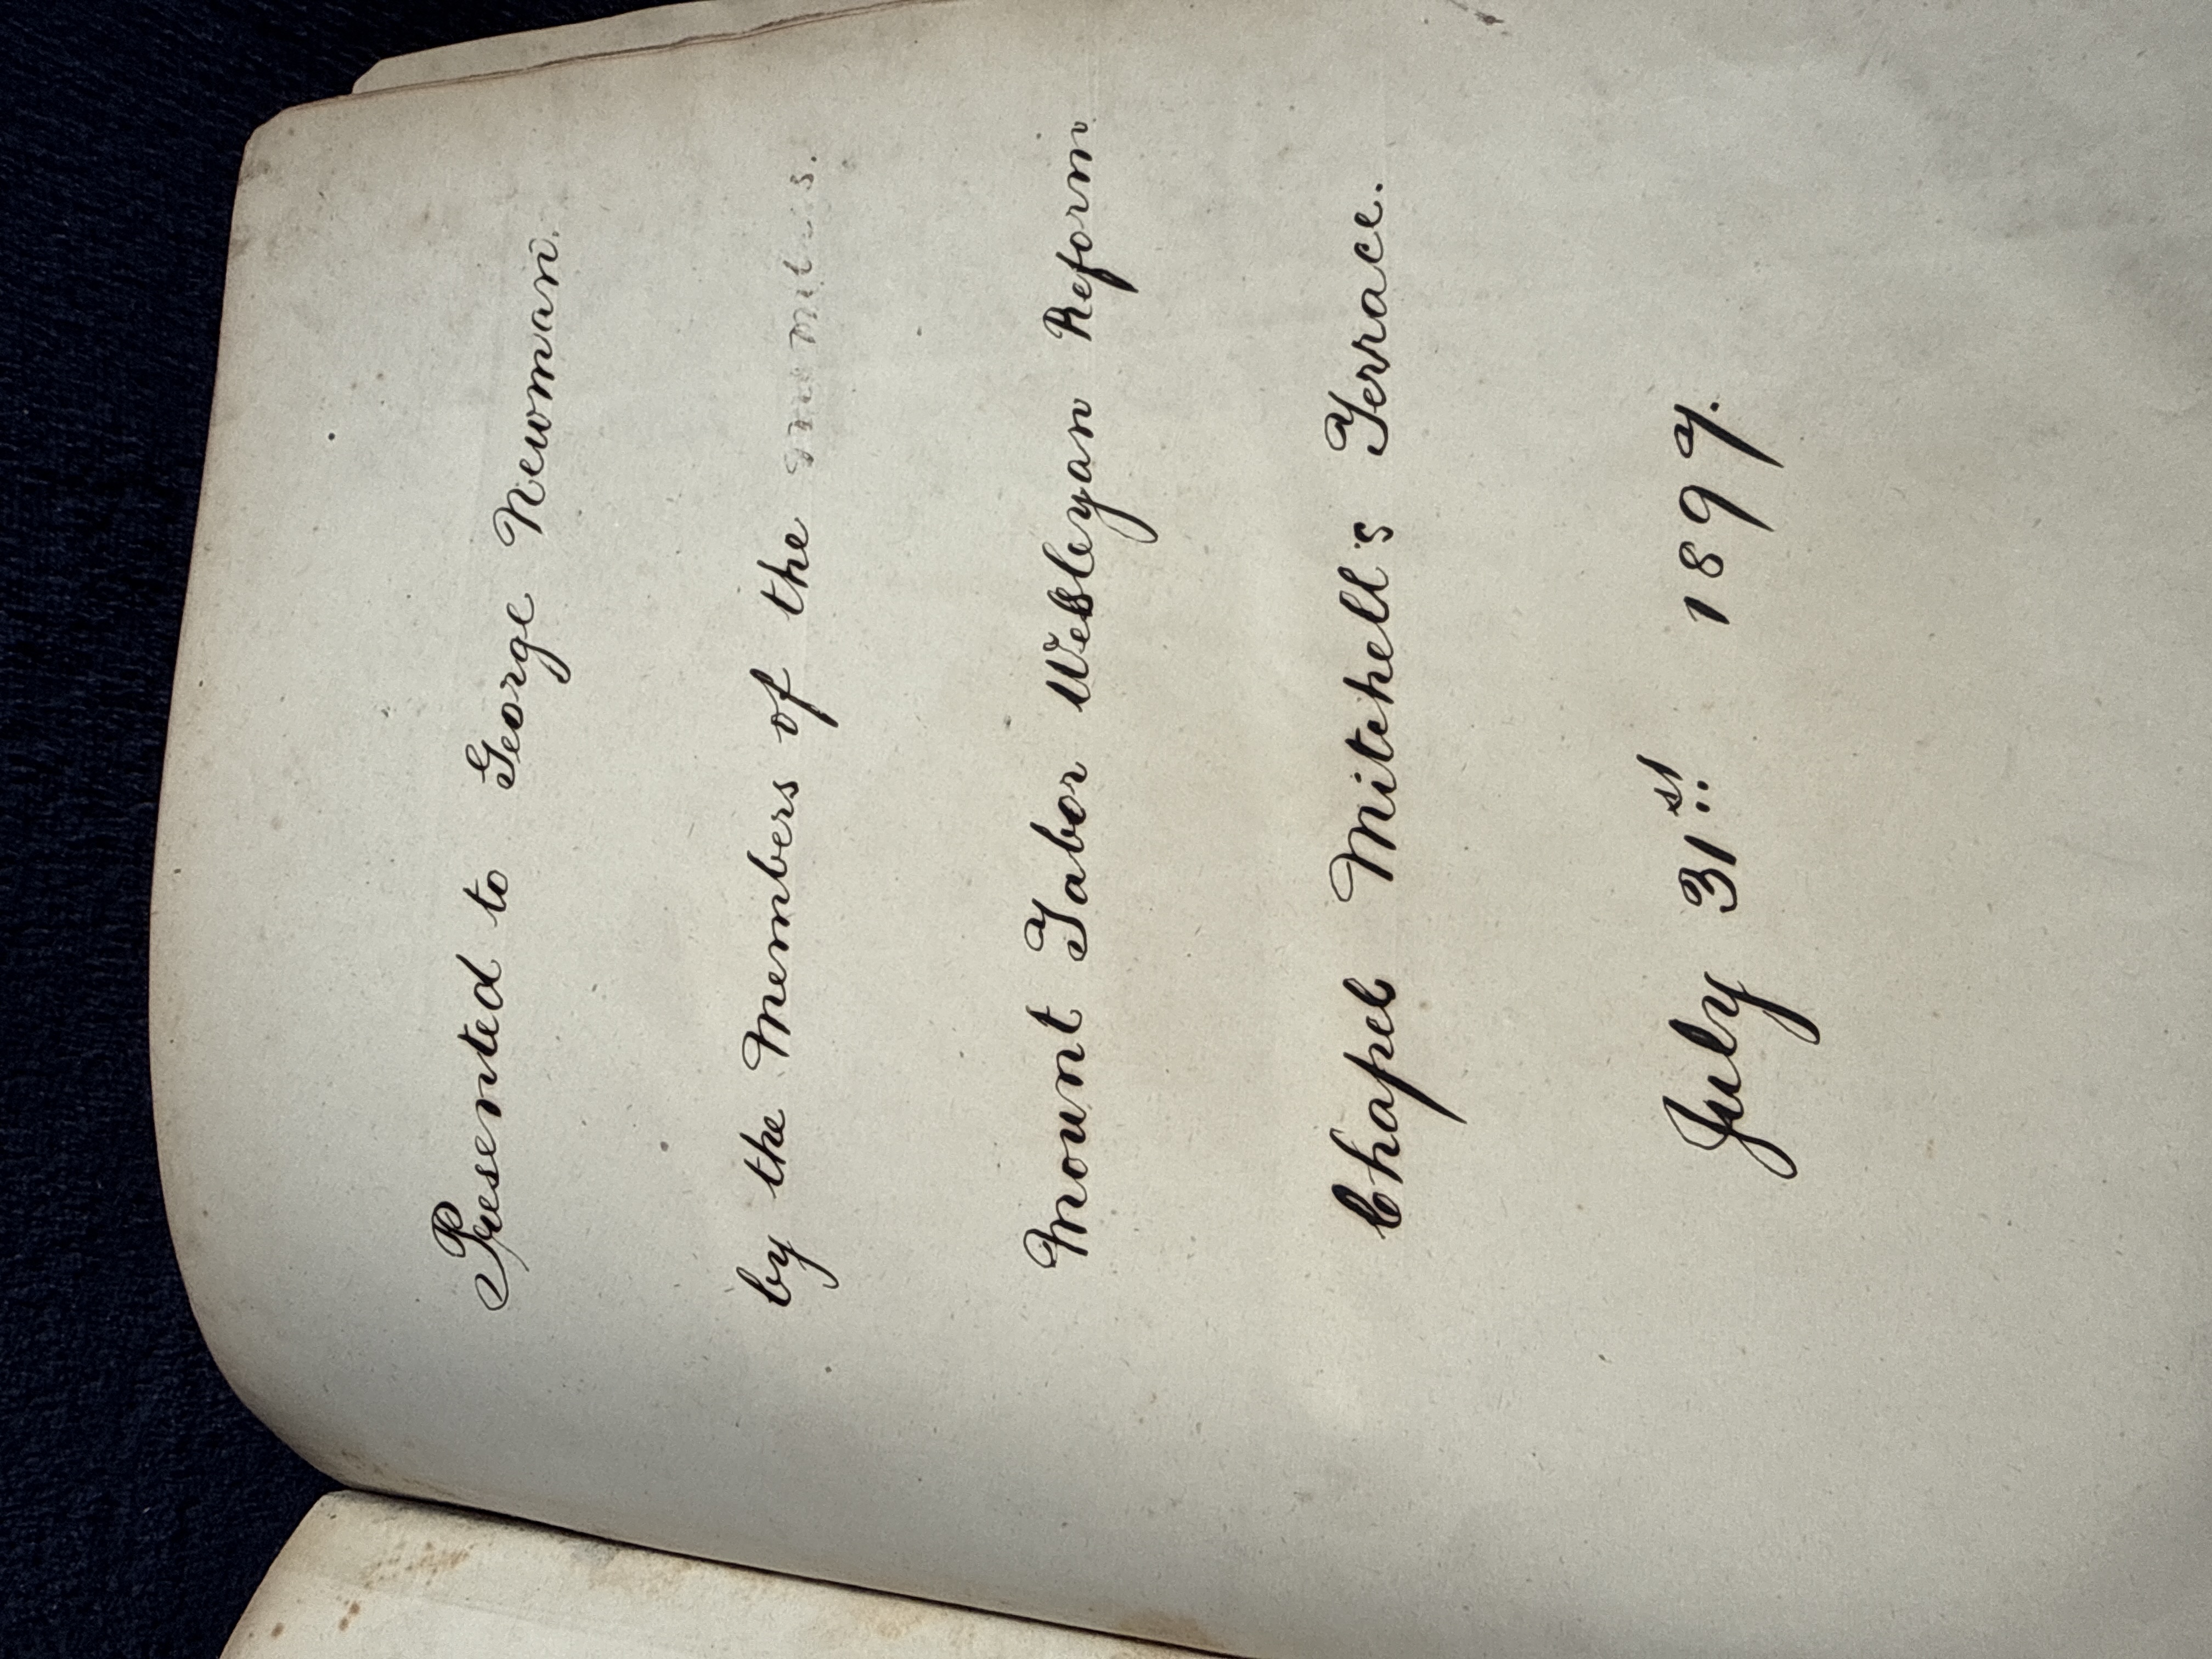 Presented to George Newman.
by the Members of the
Mount Tabor Wesleyan Reform
Chapel Mitchell's Terrace.
July 31st 1897.